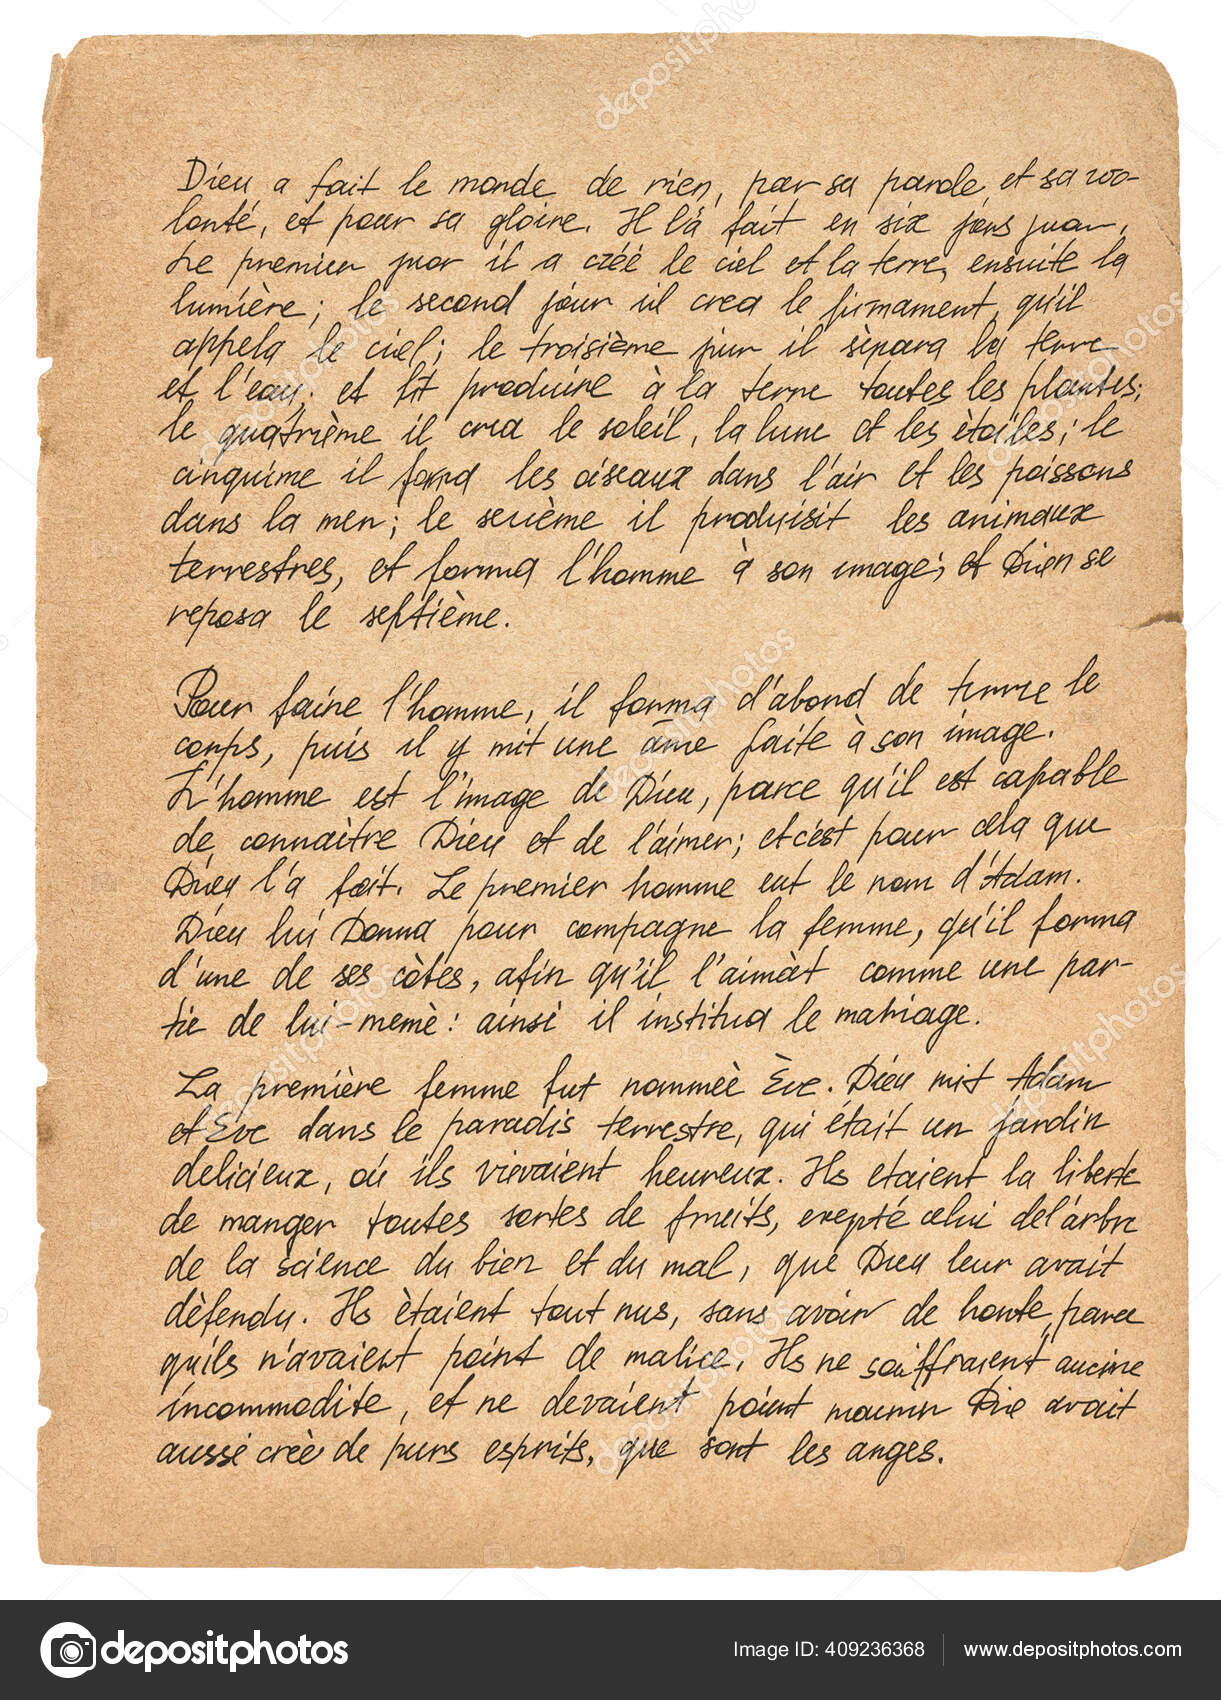 Dieu a fait le monde de rien, par sa parole et sa vo-
lonté, et pour sa gloire. Il l'a fait en six jours
Le premier il a créé le ciel et la terre, ensuite la
lumière; le second jour il crea le firmament, qu'il
appela le ciel; le troisième jour il sèpara la terre
et l'eau. et fit produire à la terre toutes les plantes;
le quatrième il crea le soleil, la lune et les ètoiles; le
cinquime il les oiseaux dans l'air et les poissons
dans la mer; le il produisit les animaux
terrestres, et forma l'homme à son image; et Dieu se
reposa le septième.
Pour faire l'homme, il forma d'abord de terre le
corps, puis il y mit une âme faite à son image.
L'homme est l'image de Dieu, parce qu'il est capable
de connaitre Dieu et de l'aimer; et c'est pour cela que
Dieu l'a fait. Le premier homme eut le nom d'Adam.
Dieu lui Donna pour compagne la femme, qu'il forma
d'une de ses còtes, afin qu'il l'aimàt comme une par-
tie de lui-memè: ainsi il institua le mariage.
La première femme fut nommeè Ève. Dieu mit Adam
et Eve dans le paradis terrestre, qui était un jardin
delicieux, où ils vivaient heureux. Ils etaient la liberte
de manger toutes sortes de fruits, exepté celui de l'arbre
de la science du bien et du mal, que Dieu leur avait
dèfendu. Ils ètaient tout nus, sans avoir de honte, parce
quils n'avaient point de malice. Ils ne souffraient aucune
incommodite, et ne devaient point mourir Die avait
aussi creè de purs esprits, que sont les anges.
depositphotos
Image ID: 409236368 www.depositphotos.com